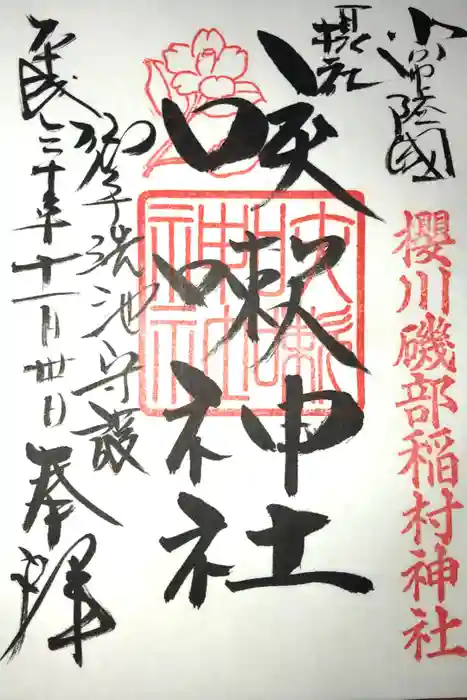 常陸國
摂社
櫻川磯部稲村神社
咲嗽神社
咲嗽神社
御手洗池守護
平成三十年十一月丗日
奉拝